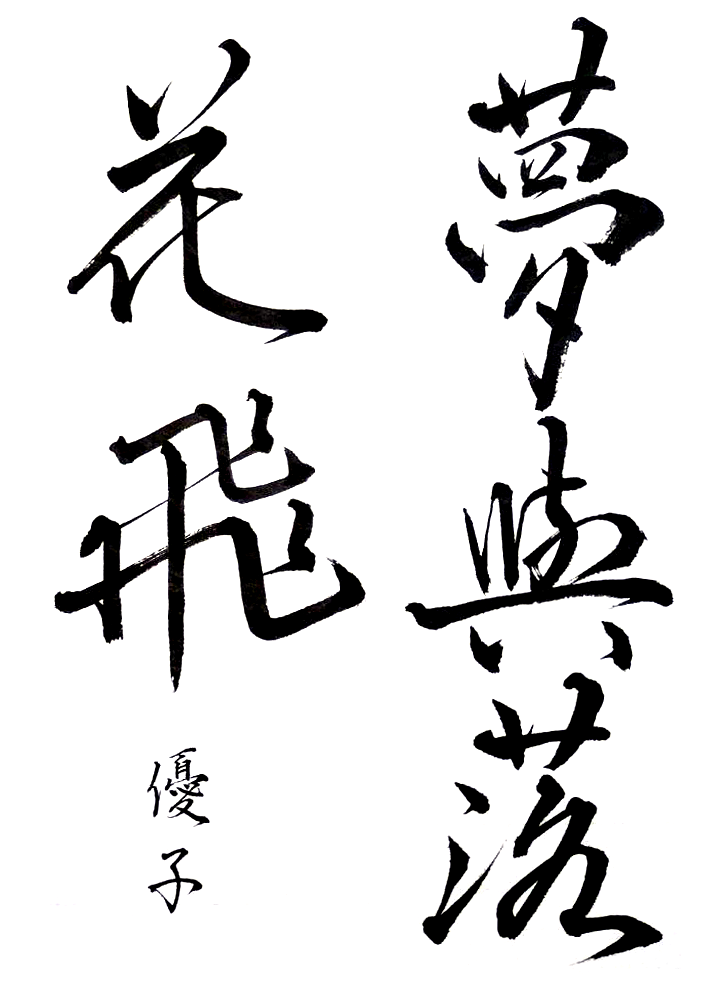 夢與落
花飛
優子